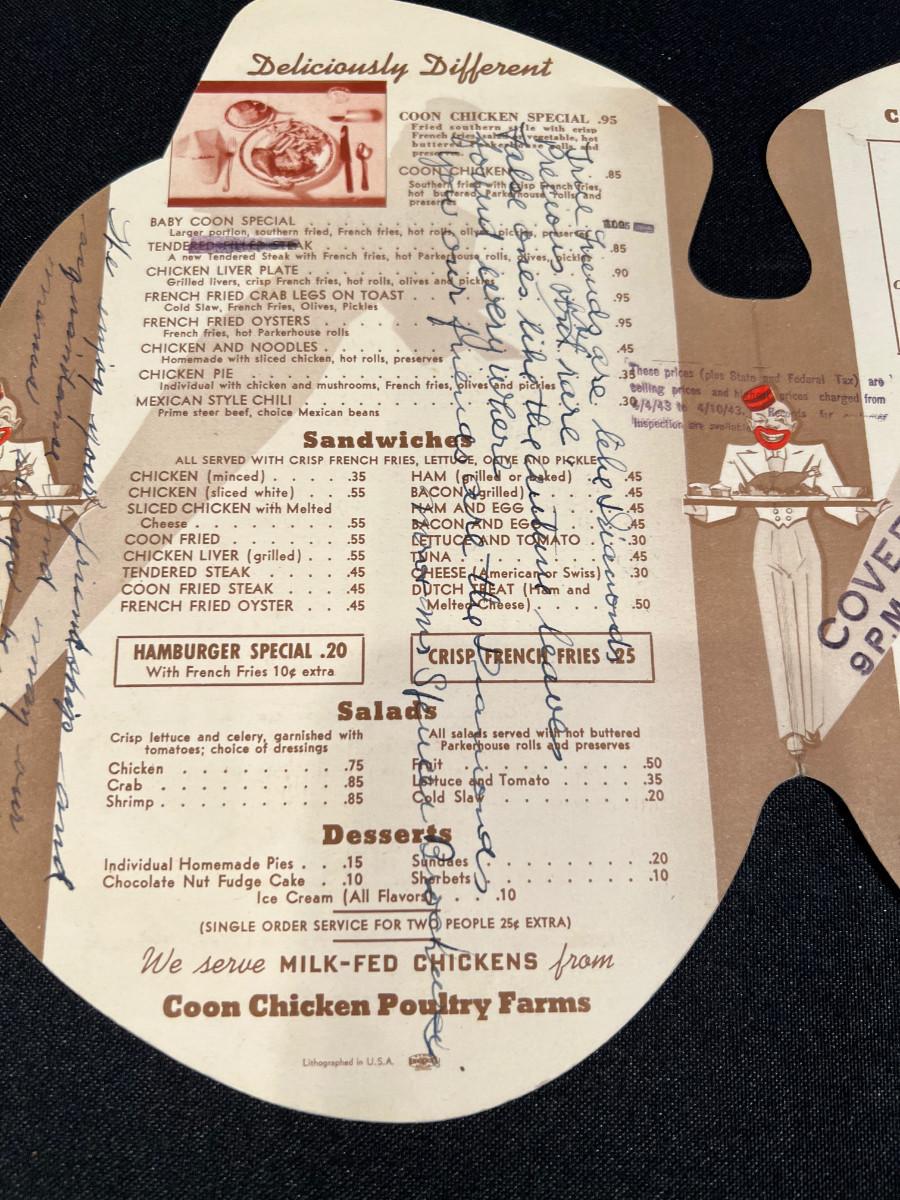 Deliciously Different
COON CHICKEN SPECIAL .95
Fried southern style with crisp
French fries, salad or vegetable, hot
buttered Parkerhouse rolls and
preserves
COON CHICKEN .85
Southern fried with crisp French fries,
hot buttered Parkerhouse rolls and
preserves
BABY COON SPECIAL
Larger portion, southern fried, French fries, hot rolls, olives, pickles, preserves
TENDERED STEAK . . . .85
A new Tendered Steak with French fries, hot Parkerhouse rolls, olives, pickles
CHICKEN LIVER PLATE . . . .90
Grilled livers, crisp French fries, hot rolls, olives and pickles
FRENCH FRIED CRAB LEGS ON TOAST . . . .95
Cold Slaw, French Fries, Olives, Pickles
FRENCH FRIED OYSTERS . . . .95
French fries, hot Parkerhouse rolls
CHICKEN AND NOODLES . . . .45
Homemade with sliced chicken, hot rolls, preserves
CHICKEN PIE . . . .35
Individual with chicken and mushrooms, French fries, olives and pickles
MEXICAN STYLE CHILI . . . .30
Prime steer beef, choice Mexican beans
Sandwiches
ALL SERVED WITH CRISP FRENCH FRIES, LETTUCE, OLIVE AND PICKLE
CHICKEN (minced) . . . .35
CHICKEN (sliced white) . . . .55
SLICED CHICKEN with Melted
Cheese . . . .55
COON FRIED . . . .55
CHICKEN LIVER (grilled) . . . .55
TENDERED STEAK . . . .45
COON FRIED STEAK . . . .45
FRENCH FRIED OYSTER . . . .45
HAM (grilled or baked) .45
BACON (grilled) . . . .45
HAM AND EGG . . . .45
BACON AND EGG . . . .45
LETTUCE AND TOMATO . . . .30
TUNA . . . .45
CHEESE (American or Swiss) .30
DUTCH TREAT (Ham and
Melted Cheese) . . . .50
HAMBURGER SPECIAL .20
With French Fries 10¢ extra
CRISP FRENCH FRIES .25
Salads
Crisp lettuce and celery, garnished with
tomatoes; choice of dressings
Chicken . . . .75
Crab . . . .85
Shrimp . . . .85
All salads served with hot buttered
Parkerhouse rolls and preserves
Fruit . . . .50
Lettuce and Tomato . . . .35
Cold Slaw . . . .20
Desserts
Individual Homemade Pies . . .15
Chocolate Nut Fudge Cake . .10
Sundaes . . . .20
Sherbets . . . .10
Ice Cream (All Flavors) . . .10
(SINGLE ORDER SERVICE FOR TWO PEOPLE 25¢ EXTRA)
We serve MILK-FED CHICKENS from
Coon Chicken Poultry Farms
Lithographed in U.S.A.
True friends are like diamonds
Precious but rare
False ones like the autumn leaves
Found every where
your friendship and
and may our
These prices (plus State and Federal Tax) are
selling prices and highest prices charged from
4/4/43 to 4/10/43. Records for
Inspection are available
COVER
9 P.M.
C